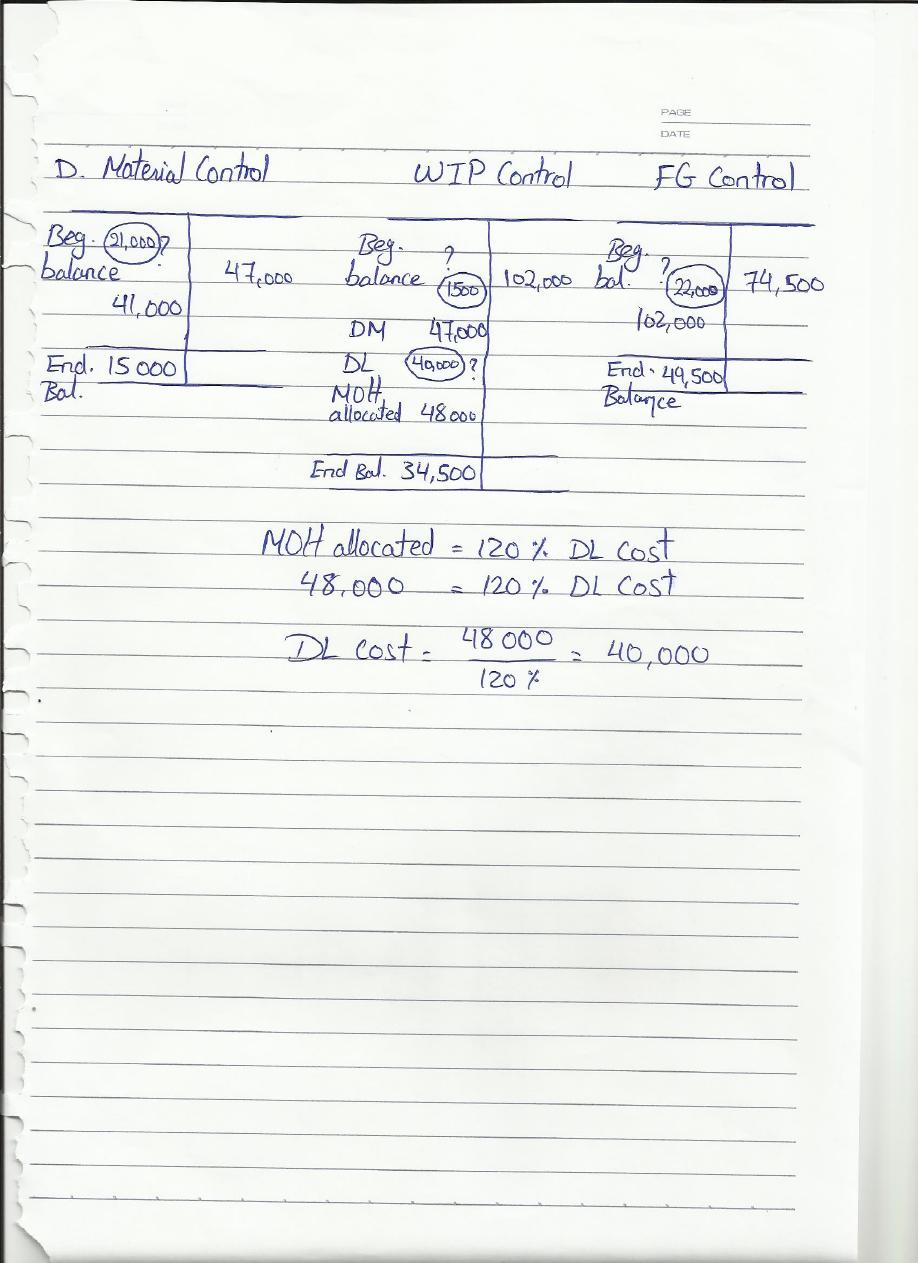 PAGE
DATE
D. Material Control WIP Control FG Control
Beg. 21,000 ?
balance 47,000
41,000
End. 15 000
Bal.
Beg. ?
balance 1500 102,000
DM 47,000
DL 40,000 ?
MOH
allocated 48000
End Bal. 34,500
Beg. ?
bal. 22,000 74,500
102,000
End. 49,500
Balance
MOH allocated = 120 % DL Cost
48,000 = 120 % DL Cost
DL Cost = 48 000 / 120 % = 40,000